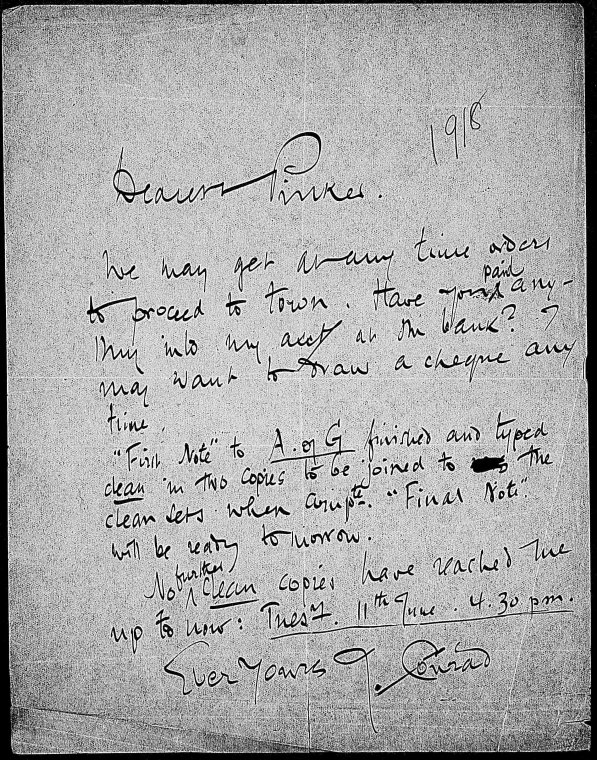 1918
Dearest Pinker.
We may get at any time orders
to proceed to town. Have you paid any-
thing into my acct at the bank? I
may want to draw a cheque any
time.
"First Note" to A. of G finished and typed
clean in two copies to be joined to the
clean sets when compte. "Final Note"
will be ready to morrow.
No further clean copies have reached me
up to now: Tuesy. 11th June. 4.30 pm.
Ever Yours J. Conrad